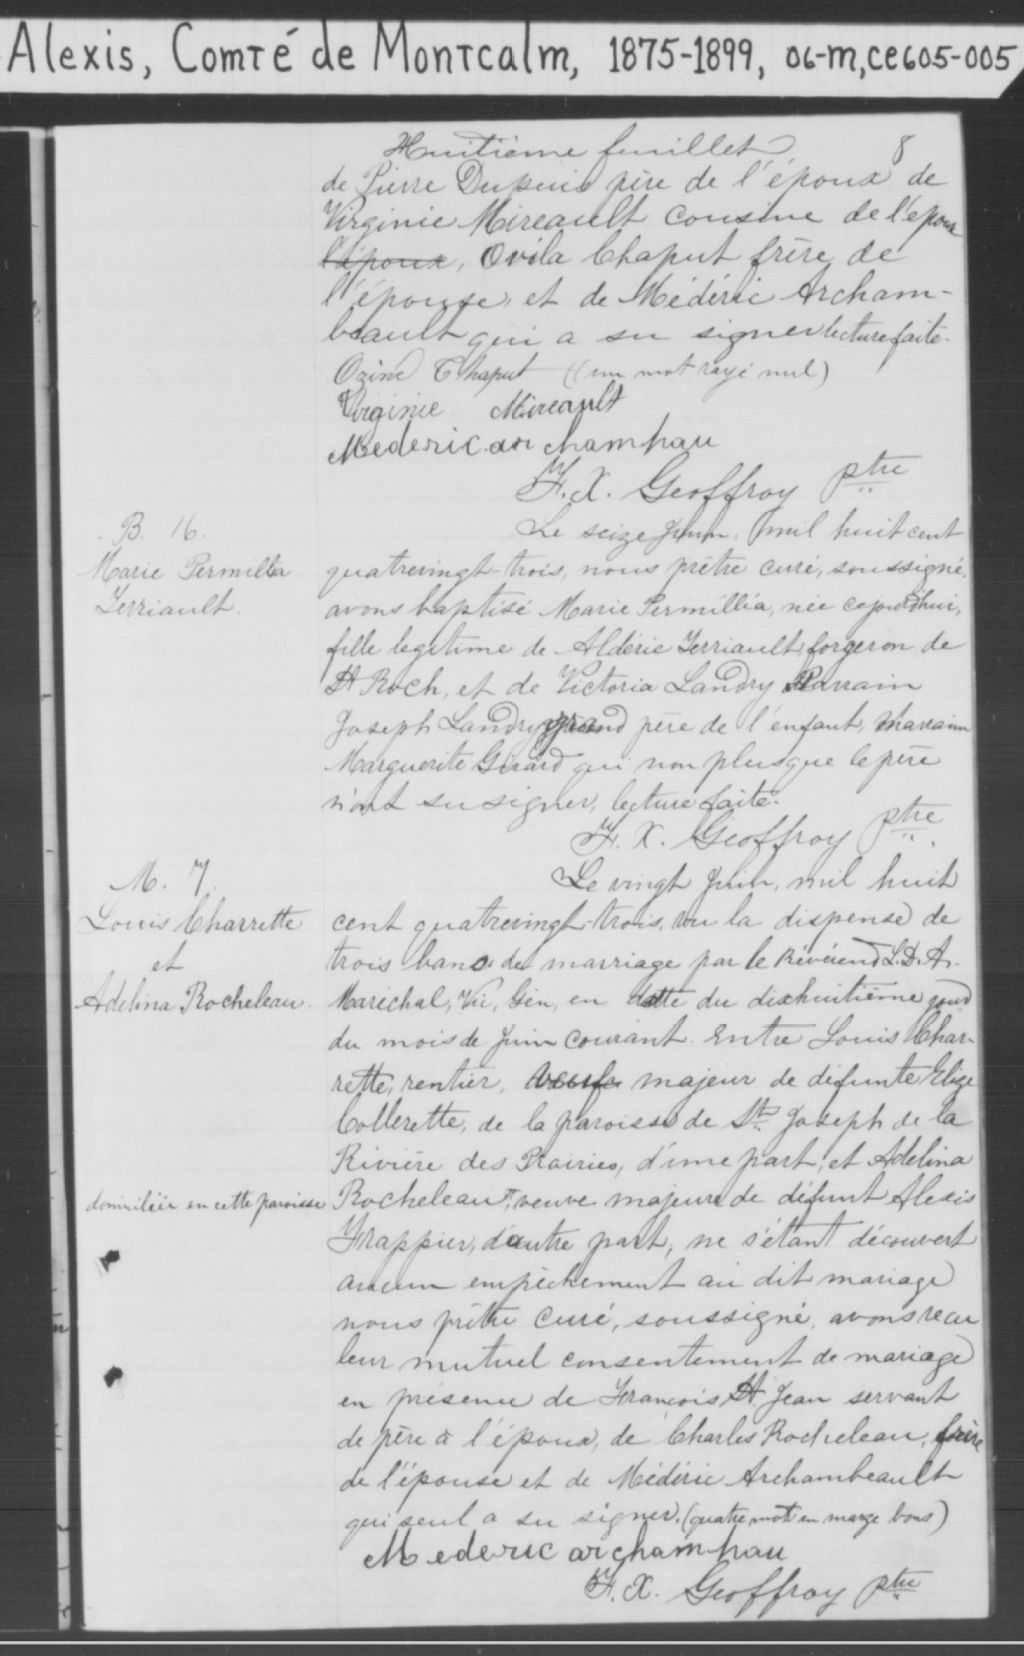 Alexis, Comté de Montcalm, 1875-1899, 06-M,CE605-005
Huitième feuillet 8
de Pierre Dupuis père de l'époux de
Virginie Mireault cousine de l'époux
l'époux, Ovila Chaput frère de
l'épouse, et de Médéric Archam-
beault qui a su signer lecture faite.
Ozine Chaput (un mot rayé nul)
Virginie Mireault
Mederic archambau
F. X. Geoffroy ptre
B. 16.
Marie Permillia
Terriault.
Le seize Juin, mil huit cent
quatrevingt-trois, nous prêtre curé, soussigné,
avons baptisé Marie Permillia, née cejourdhui,
fille legitime de Aldéric Terriault forgeron de
St Roch, et de Victoria Landry Parrain
Joseph Landry grand père de l'enfant, Marraine
Marguerite Girard qui non plus que le père
n'ont su signer, lecture faite.
F. X. Geoffroy ptre
M. 7.
Louis Charrette
et
Adelina Rocheleau.
Le vingt Juin, mil huit
cent quatrevingt-trois, vu la dispense de
trois bans de marriage par le Révérend L. D. A.
Maréchal, Vic, Gén, en datte du dixhuitième jour
du mois de Juin courant. Entre Louis Char-
rette, rentier, veuf majeur de défunte Elize
Collerette, de la paroisse de St. Joseph de la
Rivière des Prairies, d'une part, et Adelina
domiciliée en cette paroisse
Rocheleau, veuve majeure de défunt Alexis
Frappier, d'autre part, ne s'étant découvert
aucun empêchement au dit mariage
nous prêtre curé, soussigné, avons reçu
leur mutuel consentement de mariage
en présence de François St Jean servant
de père à l'époux, de Charles Rocheleau, frère
de l'épouse et de Médéric Archambeault
qui seul a su signer. (quatre mots en marge bons)
Mederic archambau
F. X. Geoffroy ptre